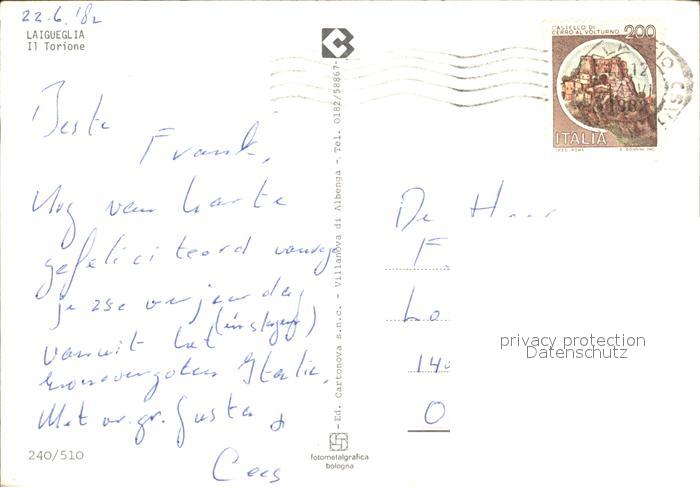 22.6.'82
LAIGUEGLIA
Il Torione
Beste
Frank,
Nog van harte
gefeliciteerd vanwege
je 25e verjaardag
vanuit het (inslagen)
zonovergoten Italie.
Met vr.gr. Gusta &
Cees
240/510
Ed. Cartonova s.n.c. - Villanova di Albenga - Tel. 0182/58867
fotometalgrafica
bologna
CASTELLO DI
CERRO AL VOLTURNO 200
ITALIA
De H
F.
Lo
14
O
privacy protection
Datenschutz